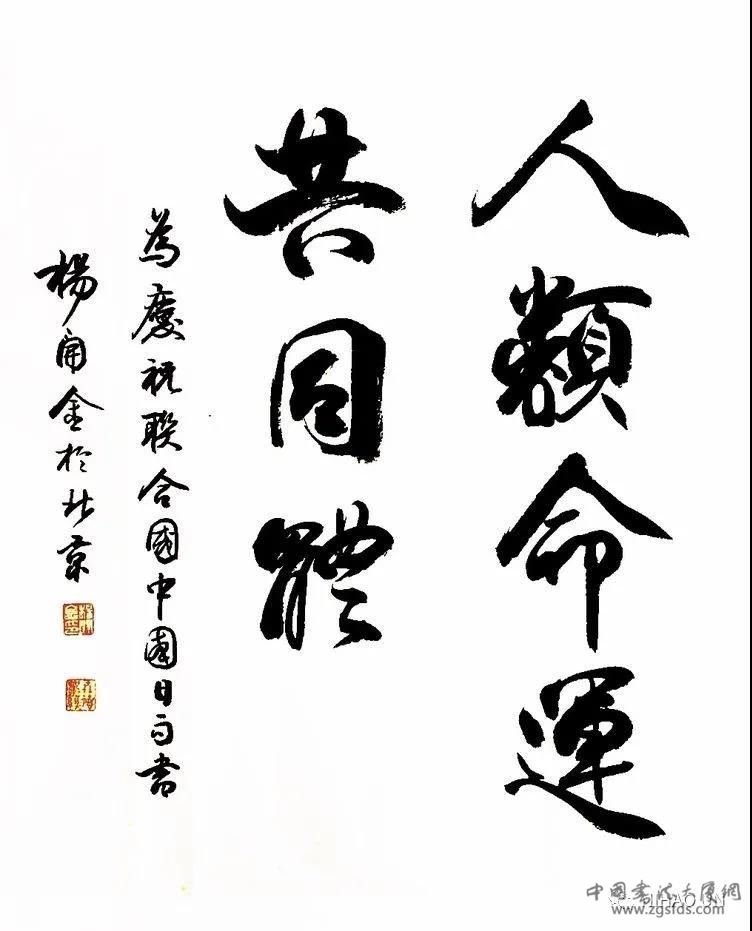 人類命運
共同體
為慶祝聯合國中國日而書
楊開金於北京
中國書法大厦網
NIHAO UN
www.zgsfds.com